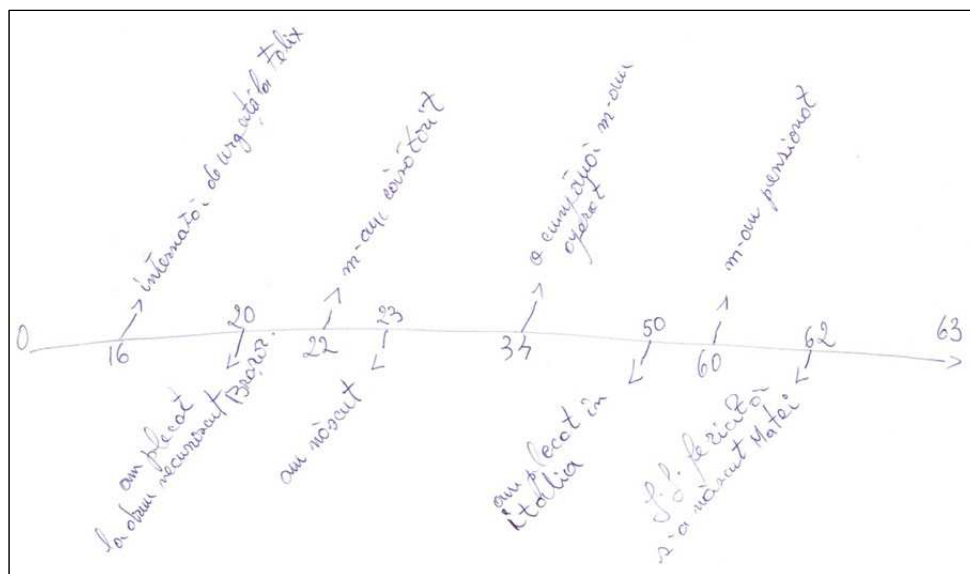 0
16
internată de urgență la Felix
20
am plecat
la drum necunoscut Brașov.
22
m-am căsătorit
23
am născut
34
a cumănăi m-am
operat
50
am plecat în
italia
60
m-am pensionat
62
f. f. fericită
s-a născut Matei
63